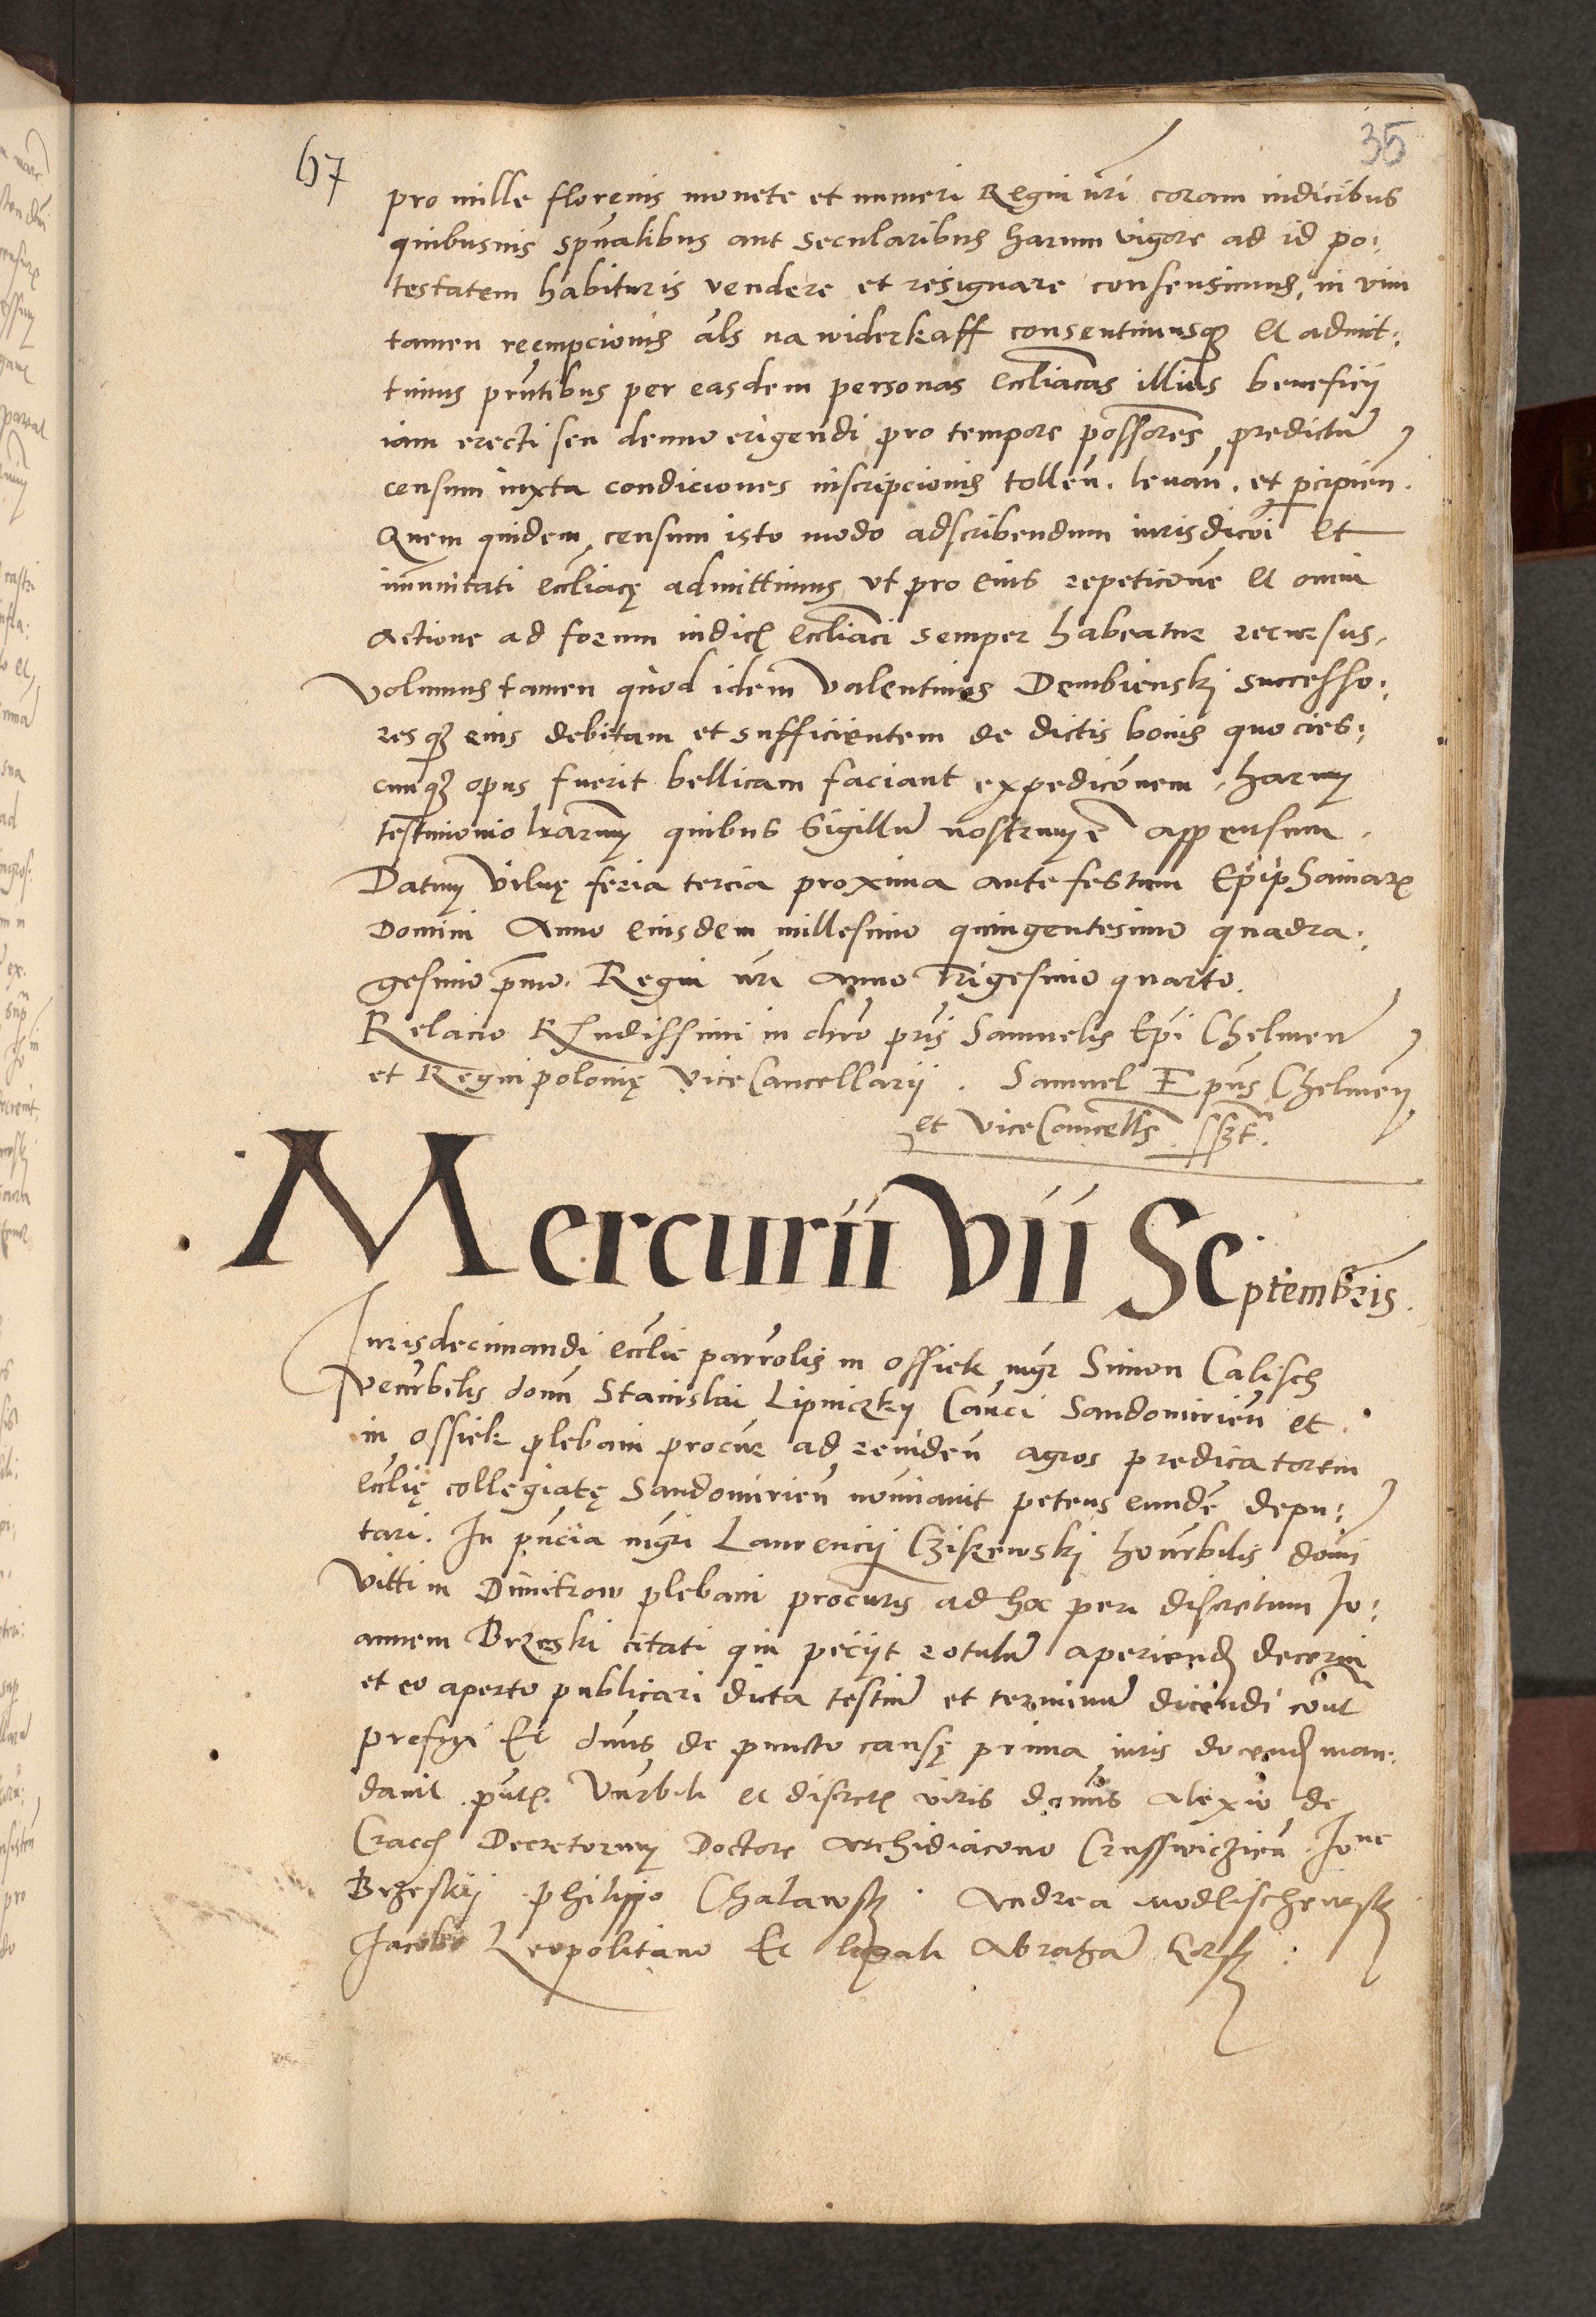 67
35
pro mille florenis monete et numeri Regni nri coram iudicibus
quibusuis spualibus aut secularibus harum vigore ad id po:
testatem habituris vendere et resignare consensimus, in vim
tamen reempcionis als na widerkaff consentimusq3 Et admit:
timus pñtibus per easdem personas eccliacas illius beneficij
iam erecti seu denuo erigendi pro tempore possores predictū
censum iuxta condiciones inscripcionis tolleñ. leuañ. et pcipień.
Quem quidem censum isto modo adscribendum iurisdicōi Et
immunitati eccliacę admittimus vt pro eius repeticione Et omni
actione ad forum iudicis eccliaci semper habeatur recursus,
Volumus tamen quod idem Valentinus Dembienskj successo:
res q3 eius debitam et sufficientem de dictis bonis quocies:
cunq3 opus fuerit bellicam faciant expediconem, harum
testimonio lrarum quibus Sigillū nostrum ē appensum.
Datum Vilnę feria tercia proxima ante festum Epiphaniarz
Domini Anno eiusdem millesimo quingentesimo quadra:
gesimo pmo. Regni nri anno Trigesimo quarto.
Relacio Rndissimi in chro pris Samuelis Epi Chelmen
et Regni polonię ViceCancellarij. Samuel Epus Chelmen
et ViceCancells sszt.
Mercurii vii Septembris.
Iurisdecimandi ecclie parrolis in Ossiek mgr Simon Calisch
venrbilis domi Stanislai Lipniczky Canci Sandomirień et
in Ossiek plebani procur ad reuideń agros predicatorem
ecclię collegiatę Sandomirień nominauit petens eundē depu:
tari. In pñcia mgri Laurencij Cziszewskj honrbilis domi
Vitti in Dimitrow plebani procuris ad hoc per discretum Jo:
annem Brzeski citati qui pecijt rotulū aperiend decerni
et eo aperto publicari dicta testiū et terminū dicendi cont
prefigi Et dnus de puncto causę prima iuris docend man:
dauit. pñt. Vnrbili et discret viris domis Alexio de
Craco Decretorum Doctore Archidiacono Crusswiczień Jone
Brzeskij Philippo Chalawsk Andrea Modlischewsk
Jacobo Leopolitano Et legali Abrahā Gorsk.